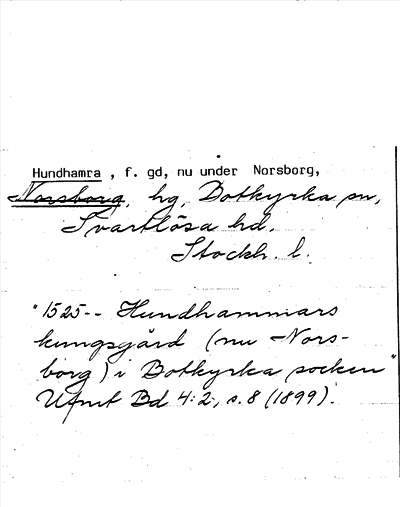 Hundhamra, f. gd, nu under Norsborg,
Norsborg, hg, Botkyrka sn,
Svartlösa hd.
Stockh. l.
"1525-- Hundhammars
kungsgård (nu Nors-
borg) i Botkyrka socken"
Ufmt Bd 4:2, s. 8 (1899).